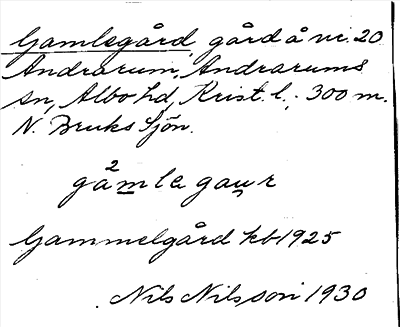 Gamlegård, gård å nr. 20
Andrarum, Andrarums
sn, Albo hd, Krist. l.; 300 m.
N. Bruks Sjön.
2
gamle gaur
Gammelgård kb 1925
Nils Nilsson 1930